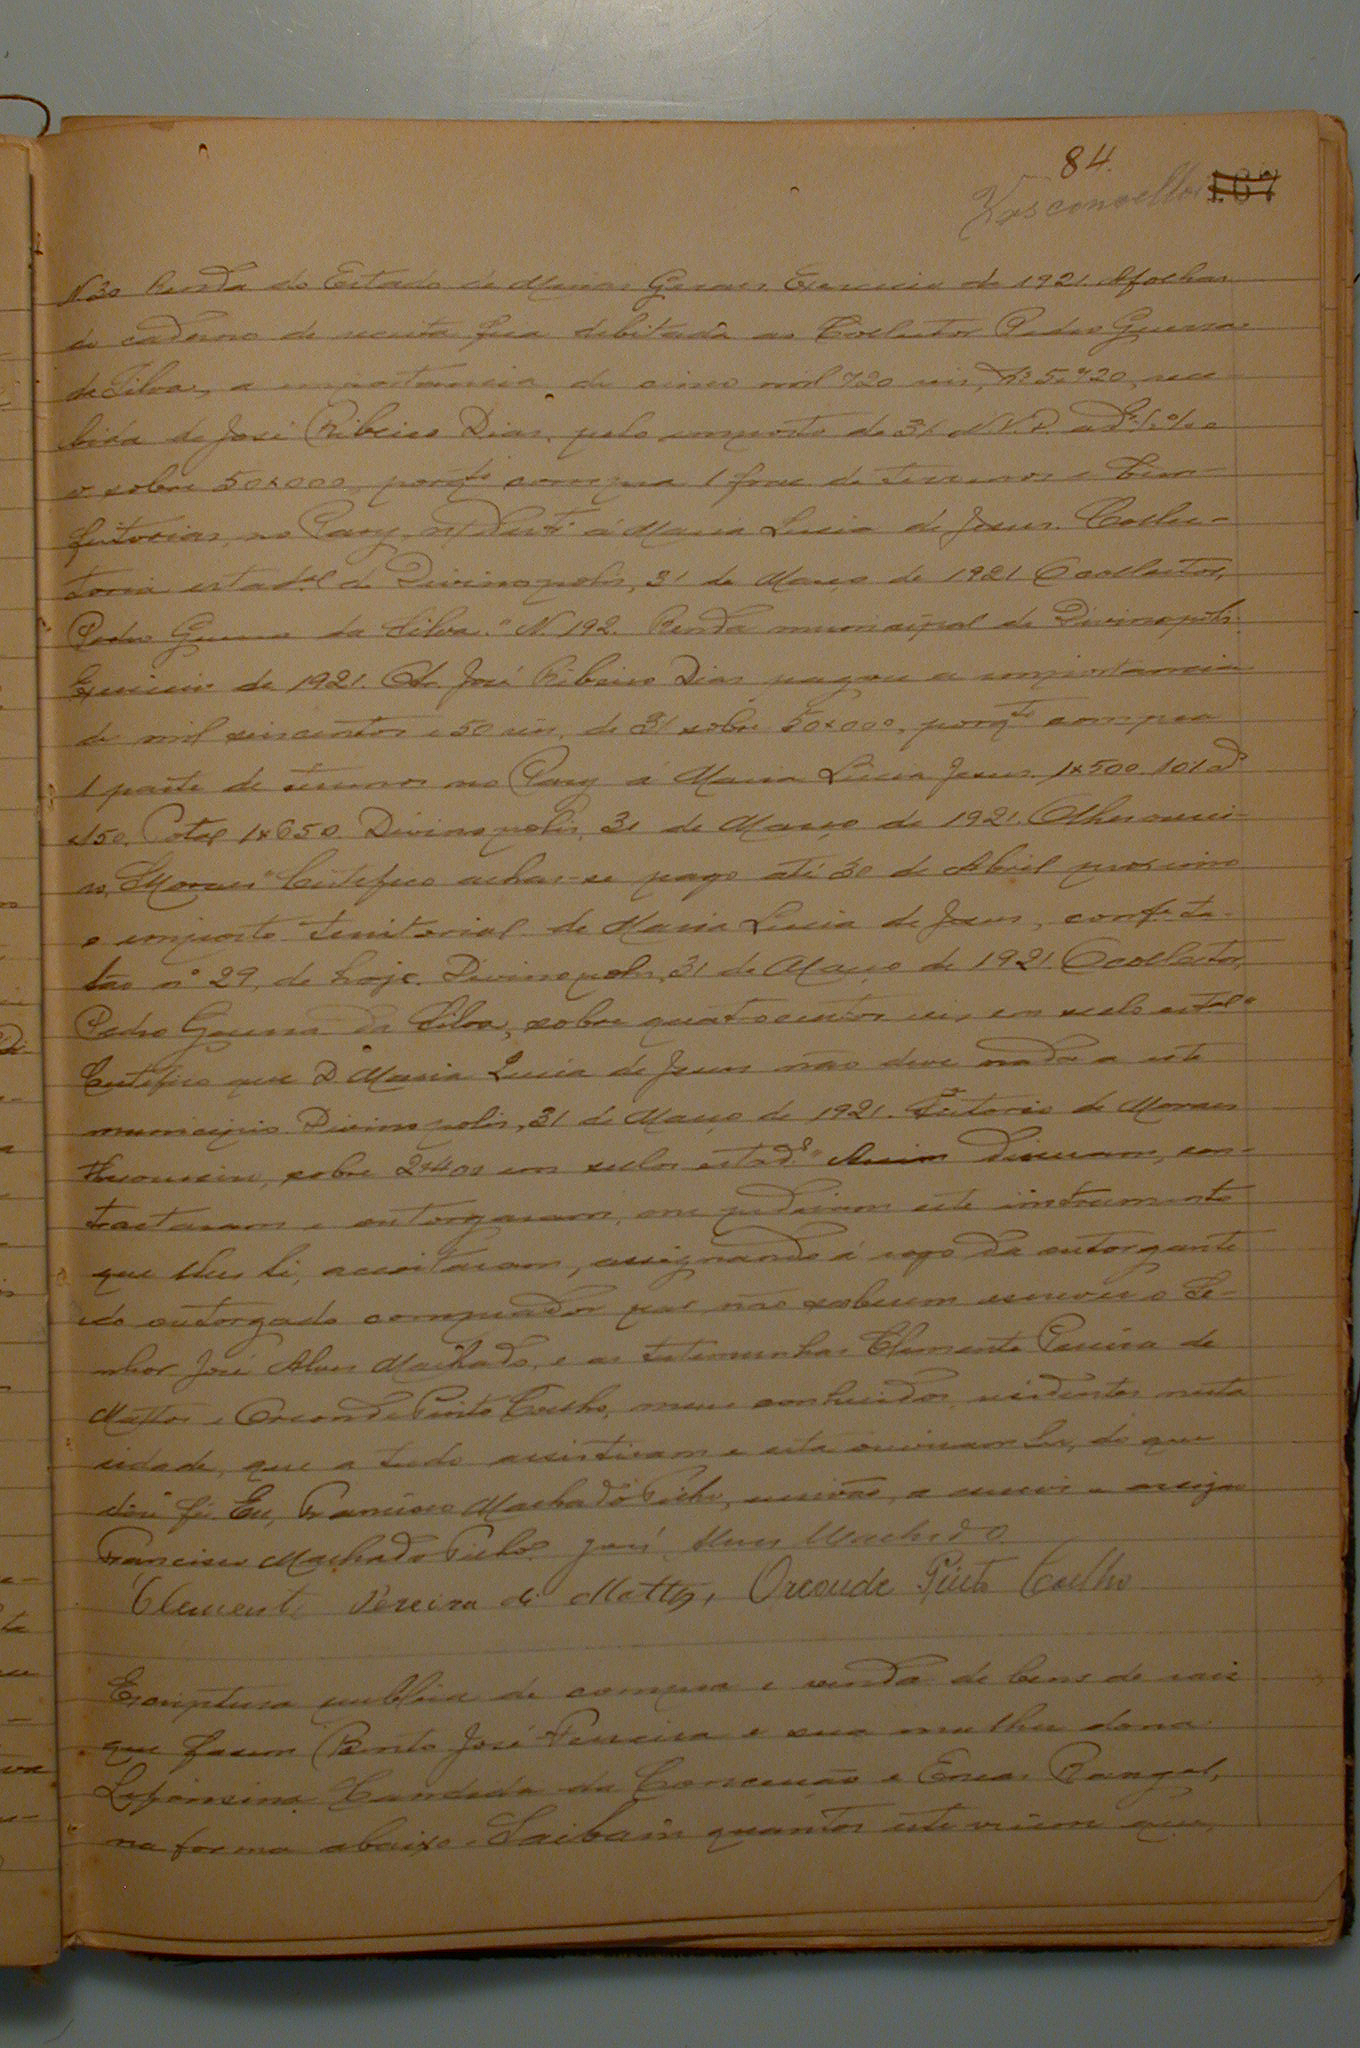 84.
Vasconcellos 167
N 30 Renda do Estado de Minas Geraes. Exercicio de 1921. A folhas
do caderno de receita fica debitada ao Collector Pedro Guerra
da Silva, a importancia de cinco mil 720 reis, Rs 5.720, rece-
bida de José Ribeiro Dias, pelo imposto de
sobre 50x000, porqto compra 1 parte de terrenos e bem-
feitorias, no Pary, n/ distto á Maria Lucia de Jesus. Collec-
toria estadal de Divinopolis, 31 de Março de 1921 O collector,
Pedro Guerra da Silva." N. 192. Renda municipal de Divinopolis.
Exercicio de 1921. O Sr. José Ribeiro Dias pagou a importancia
de mil seiscentos e 50 reis, de 3% sobre 50x000, porqto compra
1 parte de terrenos no Pary á Maria Lucia Jesus. 1x500. 10%
150. Total 1x650. Divinopolis, 31 de Março de 1921. O thesourei-
ro, Moraes" Certifico achar-se pago até 30 de Abril proximo
o imposto territorial de Maria Lucia de Jesus, conf. ta-
lão nº 29, de hoje. Divinopolis, 31 de Março de 1921. O collector,
Pedro Guerra da Silva, sobre quatrocentos reis em sello estal"
Certifico que D. Maria Lucia de Jesus não deve nada a este
municipio. Divinopolis, 31 de Março de 1921. de Moraes
thesoureiro, sobre 2x400 em sellos estad." Assim disseram, con-
tractaram e outorgaram, me pediram este instrumento
que lhes li, acceitaram, assignando á rogo da outorgante
e do outorgado comprador por não saberem escrever o Se-
nhor José Alves Machado, e as testemunhas Clemente Pereira de
Mattos e Orconde Pinto Coelho, meus conhecidos, residentes nesta
cidade, que a tudo assistiram e esta ouviram ler, do que
dou fé. Eu, Francisco Machado Filho, escrivão, a escrevi e assigno
Francisco Machado Filho. José Alves Machado
Clemente Pereira de Mattos, Orconde Pinto Coelho
Escriptura publica de compra e venda de bens de raiz
que fasem Bento José Ferreira e sua mulher dona
Candida da Conceição e Eneas Rangel,
na forma abaixo. Saibam quantos este virem que,